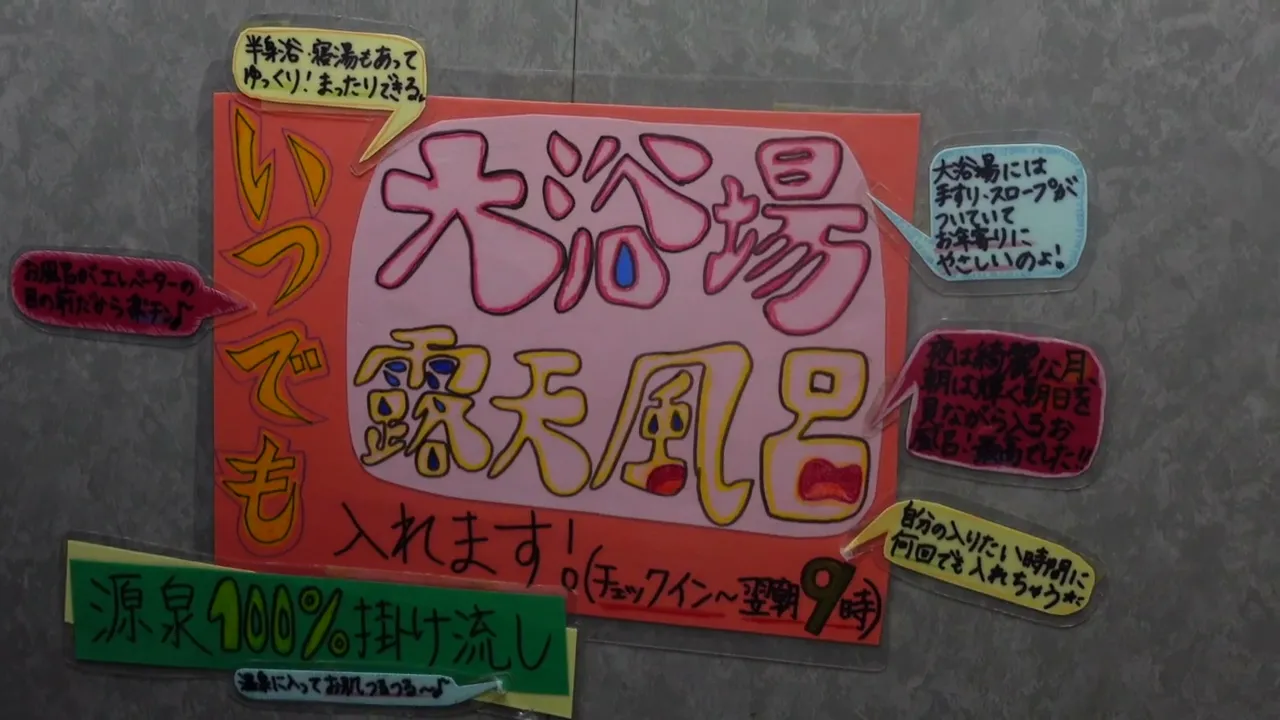 半身浴・寝湯もあって
ゆっくり!まったりできる。
いつでも
大浴場
露天風呂
入れます!(チェックイン～翌朝9時)
大浴場には
手すり・スロープが
ついていて
お年寄りに
やさしいのよ!
お風呂がエレベーターの
目の前だから楽チン♪
夜は綺麗な月、
朝は輝く朝日を
見ながら入るお
風呂!最高でした!!
自分の入りたい時間に
何回でも入れちゃう
源泉100%掛け流し
温泉に入ってお肌つるつる～♪